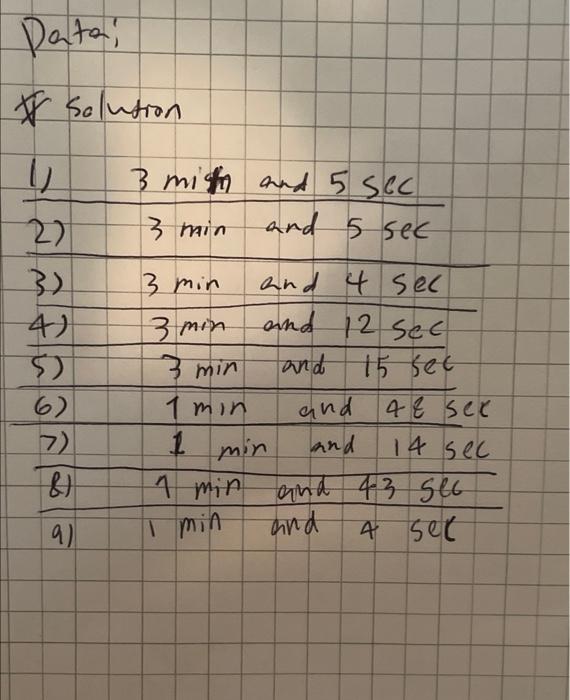 Data;
# Solution
1) 3 min and 5 sec
2) 3 min and 5 sec
3) 3 min and 4 sec
4) 3 min and 12 sec
5) 3 min and 15 sec
6) 1 min and 48 sec
7) 1 min and 14 sec
8) 1 min and 43 sec
9) 1 min and 4 sec